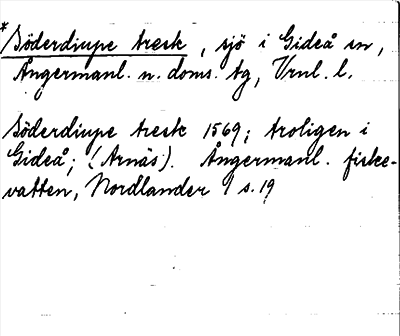 *Söderdiupe tresk, sjö i Gideå sn,
Ångermanl. n. doms. tg, Vrnl. l.
Söderdiupe tresk 1569; troligen i
Gideå; (Arnäs:). Ångermanl. fiske-
vatten, Nordlander s. 19